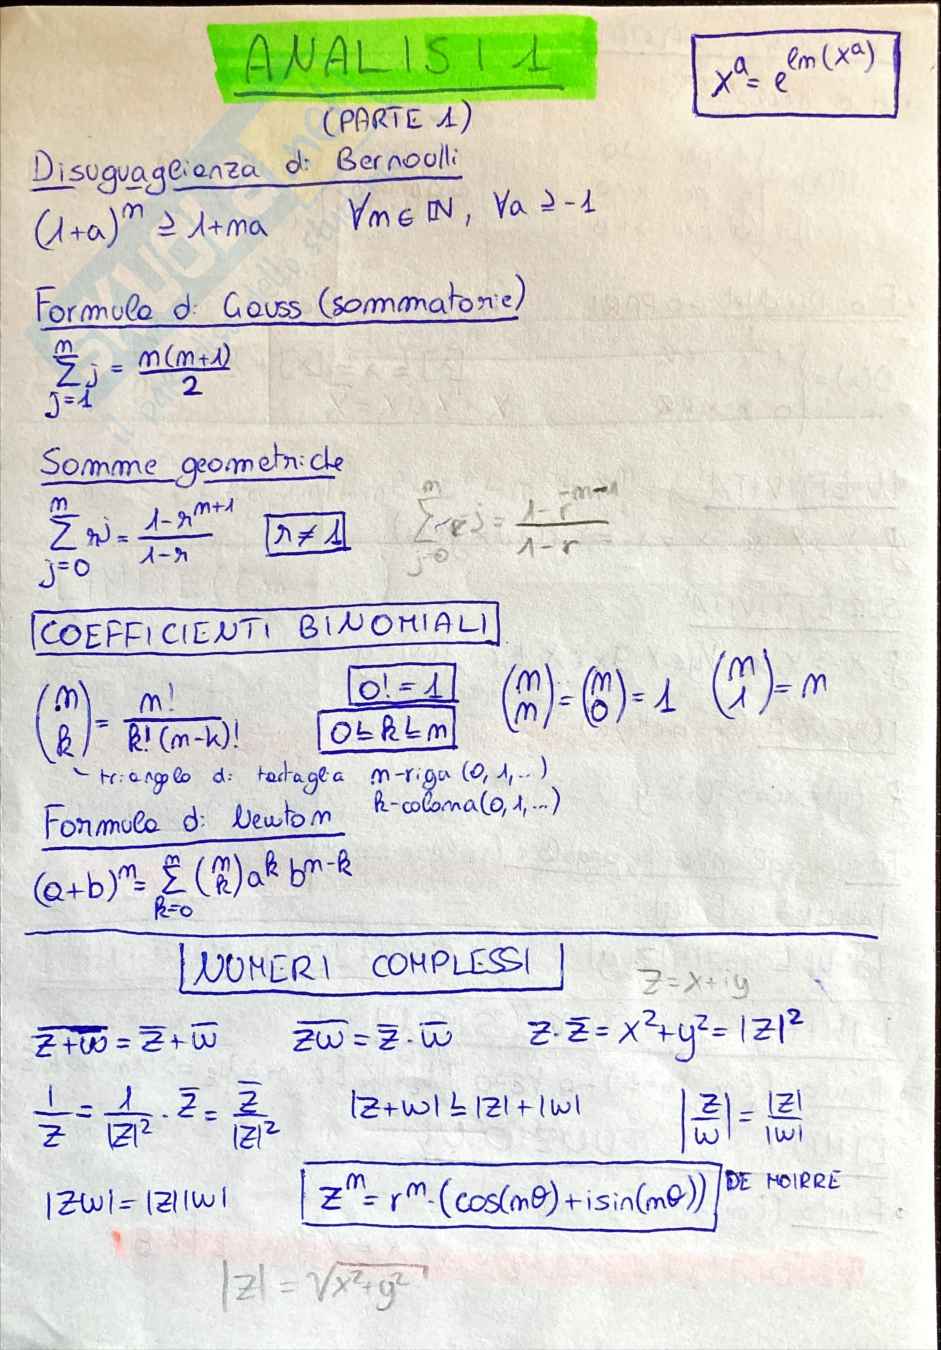 ANALISI 1
x^a = e^{ln(x^a)}
(PARTE 1)
Disuguaglianza di Bernoulli
(1+a)^n ≥ 1+na ∀n∈ℕ, ∀a ≥ -1
Formula di Gauss (sommatorie)
∑_{j=1}^{n} j = n(n+1)/2
Somme geometriche
∑_{j=0}^{n} r^j = (1-r^{n+1})/(1-r) r≠1 ∑_{j=0}^{n} r^j = (1-r^{n+1})/(1-r)
COEFFICIENTI BINOMIALI
(n k) = n!/(k!(n-k)!) 0!=1 (n n) = (n 0) = 1 (n 1) = n
0≤k≤n
triangolo di tartaglia n-riga (0,1,..)
k-colonna (0,1,...)
Formula di Newton
(a+b)^n = ∑_{k=0}^{n} (n k) a^k b^{n-k}
NUMERI COMPLESSI
z=x+iy
\overline{z+w} = \overline{z} + \overline{w} \overline{zw} = \overline{z}·\overline{w} z·\overline{z} = x²+y² = |z|²
1/z = 1/|z|² · \overline{z} = \overline{z}/|z|² |z+w| ≤ |z|+|w| |z/w| = |z|/|w|
|zw| = |z||w| z^n = r^n·(cos(nθ)+isin(nθ)) DE MOIRRE
|z| = √(x²+y²)